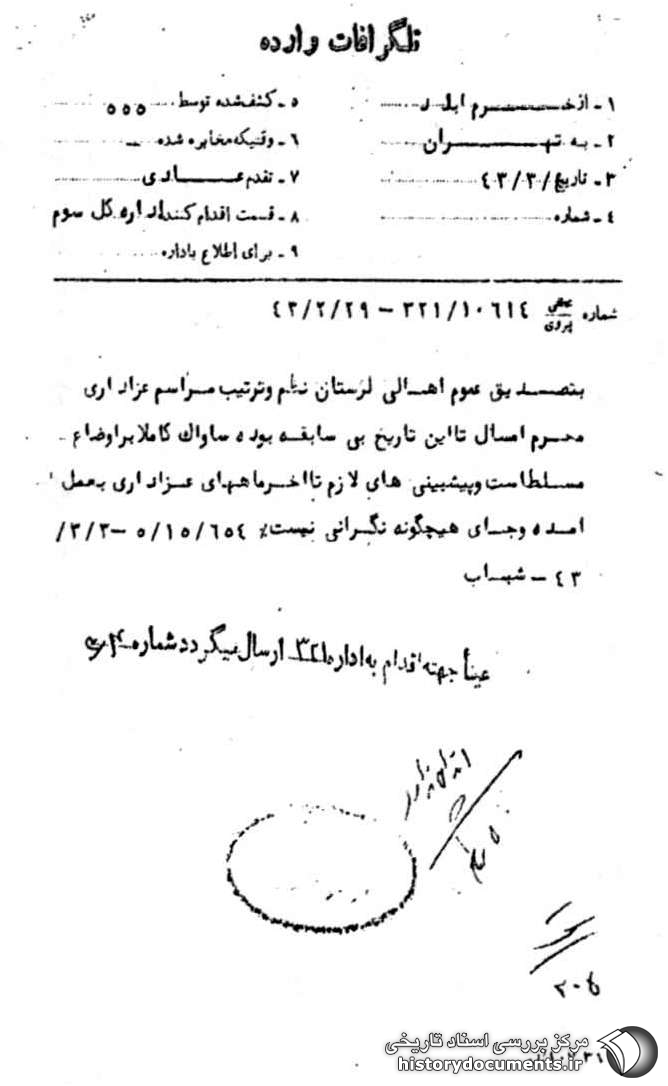 تلگرافات وارده
۱ - از خـــرم ابـاد
۲ - به تهـــران
۳ - تاریخ ۴۳/۳/
۴ - شماره
۵ - کشف شده توسط ۵۵۵
۶ - وقتیکه مخابره شده
۷ - تقدم عـــادی
۸ - قسمت اقدام کننده اداره کل سوم
۹ - برای اطلاع باداره
شماره عطفی پیروی ۳۲۱/۱۰۶۱۴ - ۴۳/۲/۲۹
بتصـدیق عموم اهـالی لرستان نظم وترتیب مـراسم عزاداری
محـرم امسال تا این تاریخ بی سابقـه بوده ساواک کاملا براوضاع
مسـلطاست وپیشبینی های لازم تا اخـر ماههای عـزاداری بعمل
امـده وجـای هیچگونه نگرانی نیست٪ ۵/۱۵/۶۵۴ - ۳/۳/
۴۳ - شهـاب
عیناً جهته اقدام به اداره ۳۲۱ ارسال میگردد شماره
اقدام ندارد
۲۰۵
مرکز بررسی اسناد تاریخی
historydocuments.ir